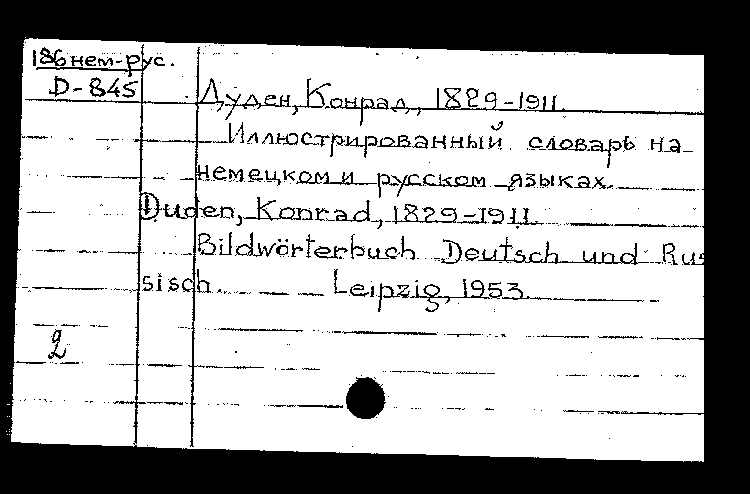 186 нем-рус.
D-845
Дуден, Конрад, 1829-1911.
Иллюстрированный словарь на
немецком и русском языках.
Duden, Konrad, 1829-1911.
Bildwörterbuch Deutsch und Rus
sisch. Leipzig, 1953.
2